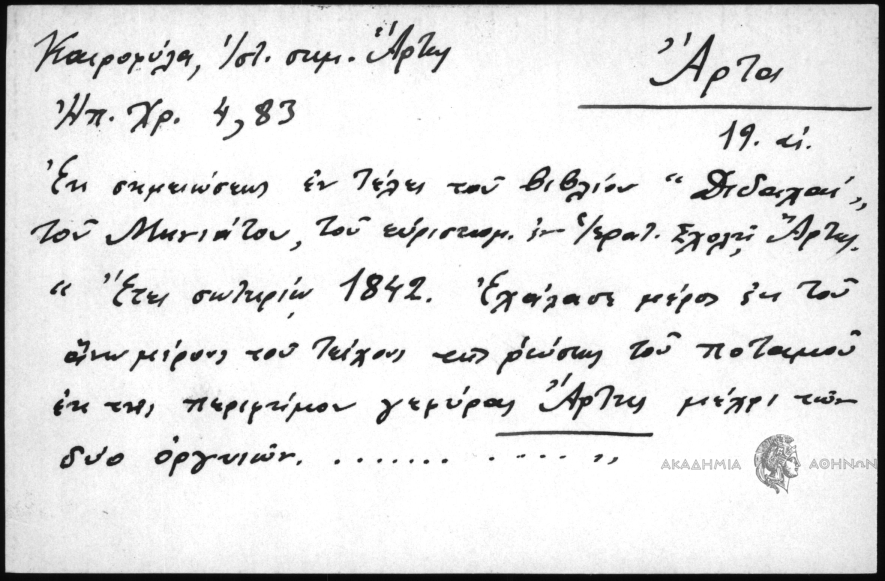 Καιροφύλα, Ἱστ. σημ. Ἄρτης
Ἄρτα
Ἠπ. Χρ. 4, 83
19. αἰ.
Ἐκ σημειώσεως ἐν τέλει τοῦ βιβλίου “Διδαχαί„
τοῦ Μηνιάτου, τοῦ εὑρισκομ. ἐν Ἱερατ. Σχολῇ Ἄρτης.
“Ἔτει σωτηρίῳ 1842. Ἐχάλασε μέρος ἐκ τοῦ
ἄνω μέρους τοῦ τείχους τῆς ῥεύσης τοῦ ποταμοῦ
ἐκ τῆς περιφήμου γεφύρας Ἄρτης μέχρι τῶν
δύο ὀργυιῶν. .................„
ΑΚΑΔΗΜΙΑ ΑΘΗΝΩΝ